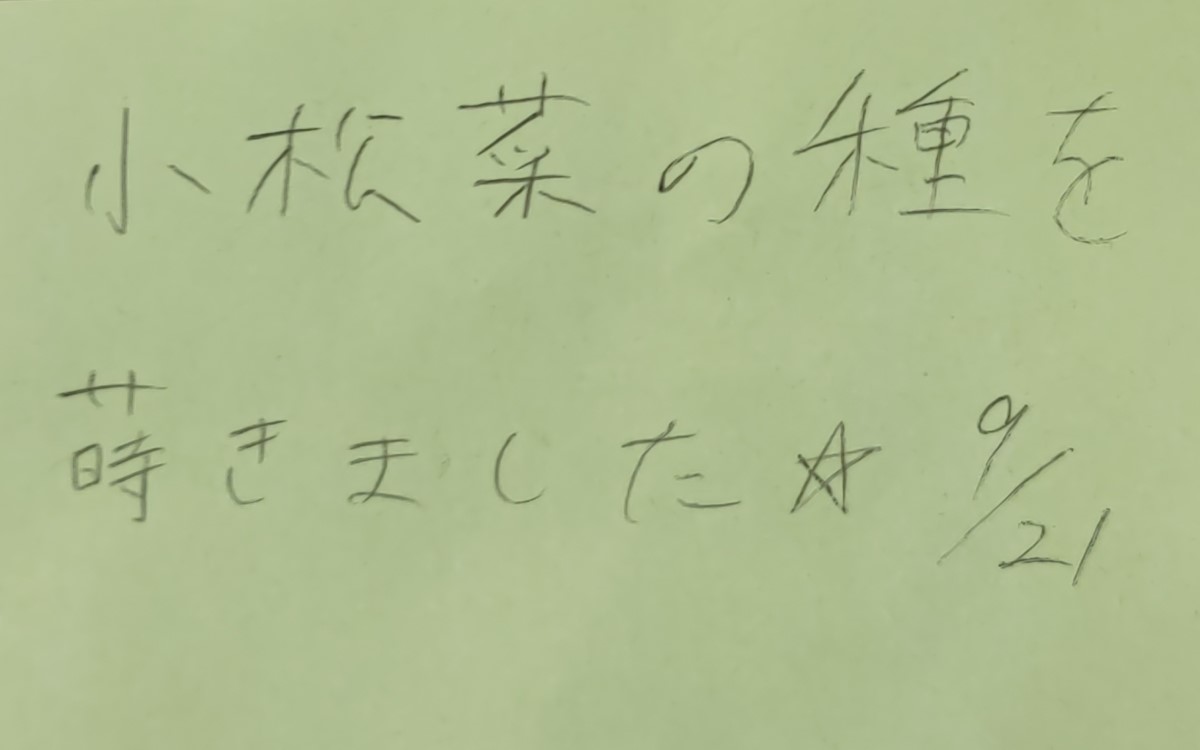 小松菜の種を
蒔きました☆ 9/21